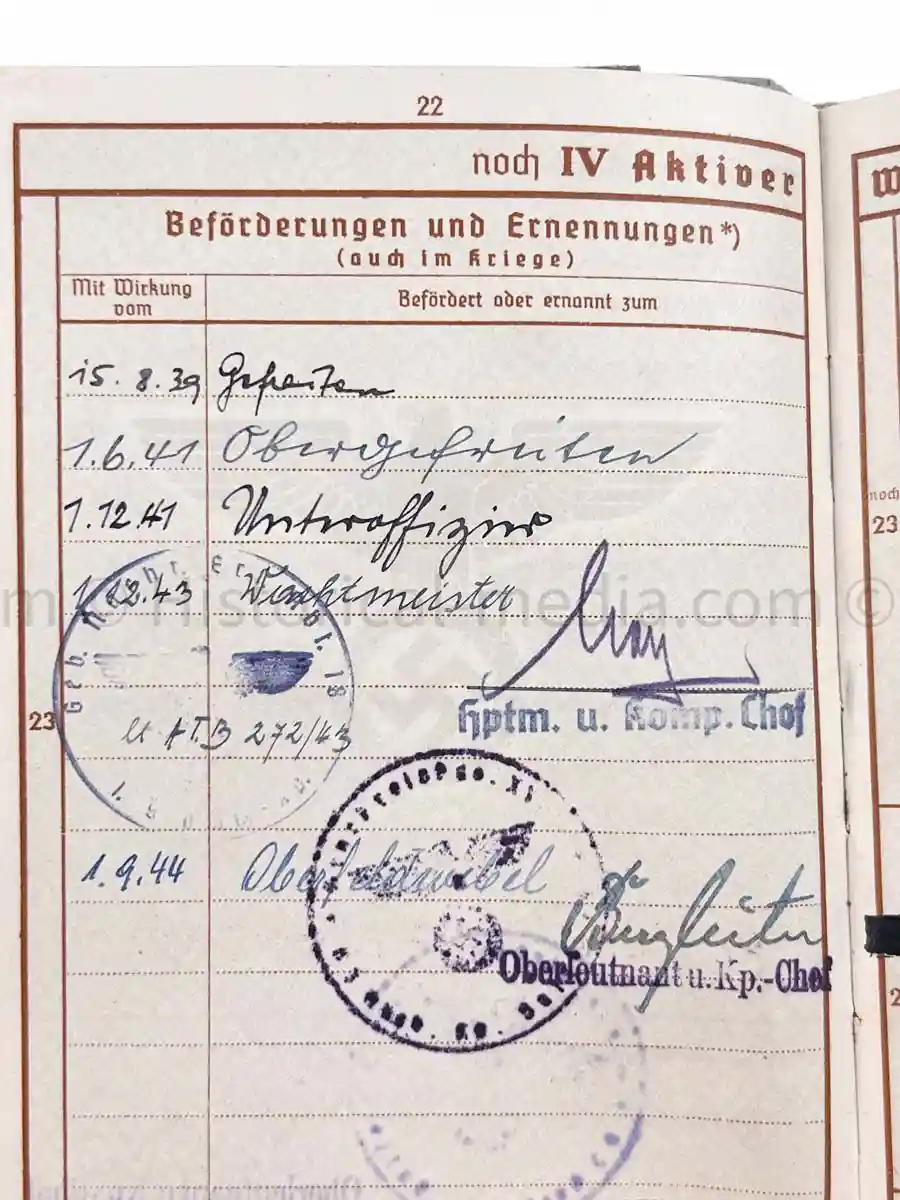 22
noch IV Aktiver
Beförderungen und Ernennungen*)
(auch im Kriege)
Mit Wirkung
vom
Befördert oder ernannt zum
15. 8. 39 Gefreiten
1.6.41 Obergefreiten
1.12.41 Unteroffizier
1.12.43 Wachtmeister
historical-media.com ©
Hptm. u. Komp. Chef
23
lt ATB 272/43
1.9.44 Oberfeldwebel
Oberleutnant u. Kp.-Chef
noch
23